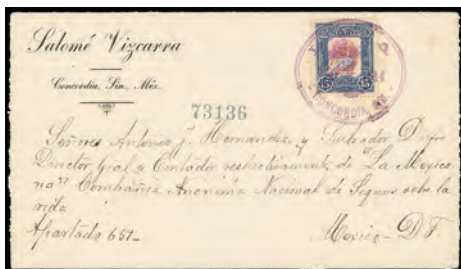 Salomé Vizcarra
Concordia, Sin., Méx.
15 15
CONCORDIA, SIN.
73136
Señores Antonio J. Hernandez y Salvador
Director Gral y Contador respectivamente de "La Mexica
na" Compañia Anonima Nacional de Seguros sobre la
vida
Apartado 651-
Mexico - D.F.